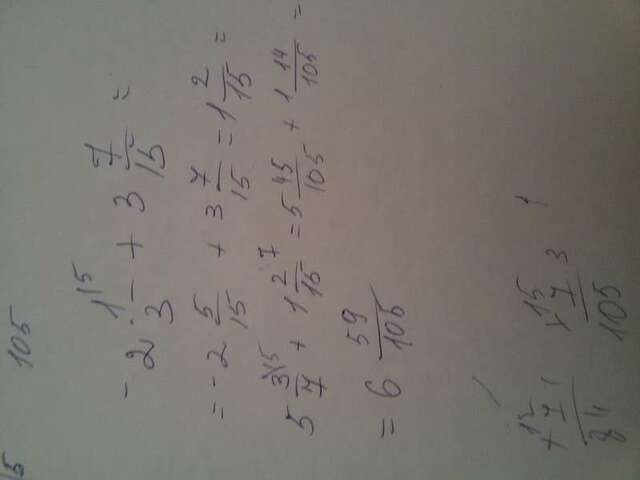 5 105
- 2 1/3 ⁵ + 3 7/15 =
= - 2 5/15 + 3 7/15 = 1 2/15 =
5 3/7 ¹⁵ + 1 2/15 ⁷ = 5 45/105 + 1 14/105 =
= 6 59/105
× 12 × 15
7 7 3
84 105